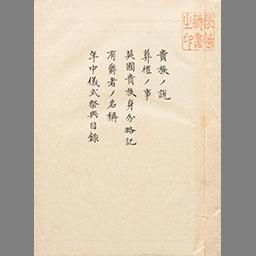 貴族ノ說
葬禮ノ事
英國貴族身分略記
有爵者ノ名稱
年中儀式祭典目錄